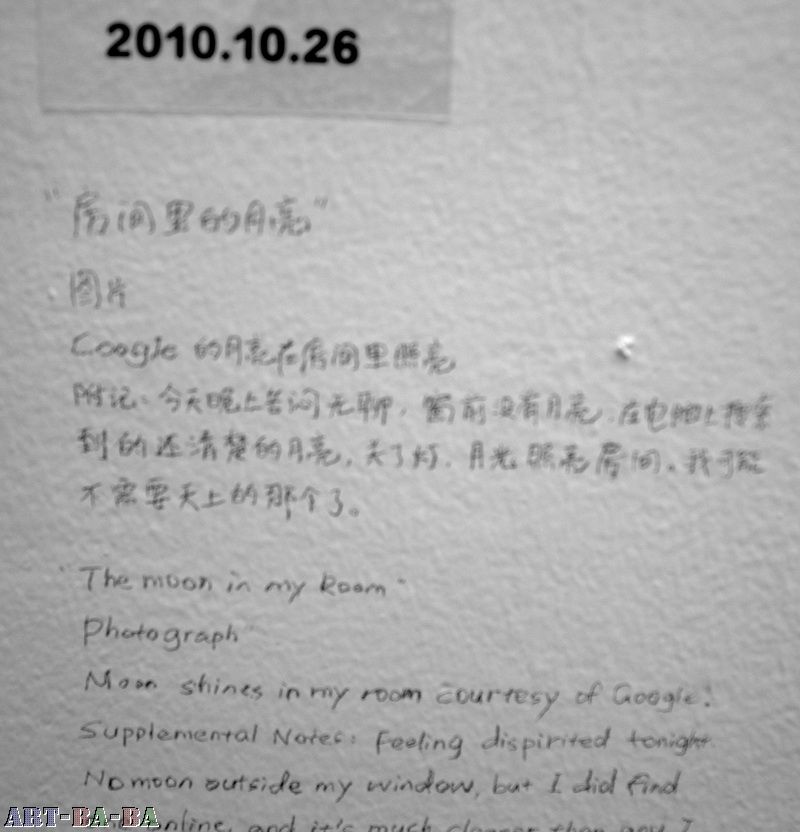 2010.10.26
"房间里的月亮"
图片
Google 的月亮在房间里照亮
附记：今天晚上苦闷无聊，窗前没有月亮，在电脑上搜索
到的还清楚的月亮，关了灯，月光照亮房间，我可能
不需要天上的那个了。
"The moon in my Room"
Photograph
Moon shines in my room courtesy of Google.
Supplemental Notes: Feeling dispirited tonight.
No moon outside my window, but I did find
online, and it's much clearer than any I
ART-BA-BA